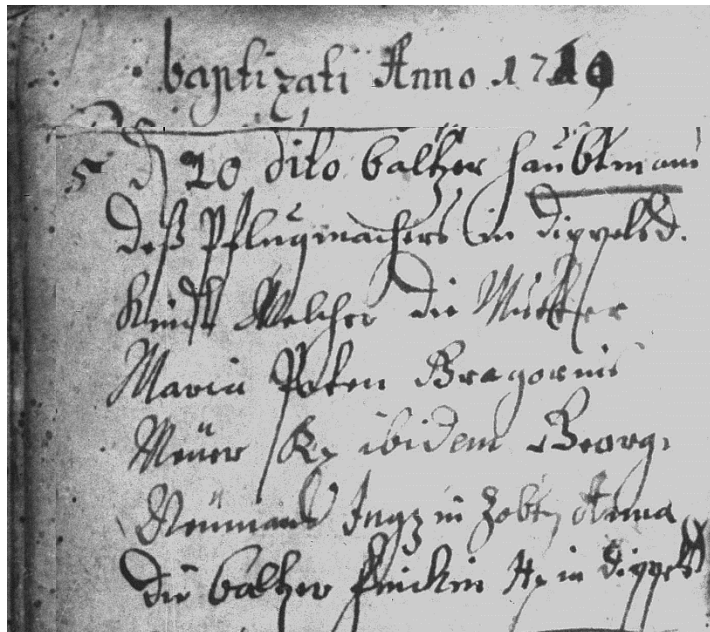 baptizati Anno 1719
5 d 20 dito baltzer Haubtman
deß Pflugmachers in dippelsd.
Kindt Welcher die Mutter
Maria Paten Gregorius
Meüer ibidem Georg
Neümans in Zobt Anna
die baltzer in dippelsd